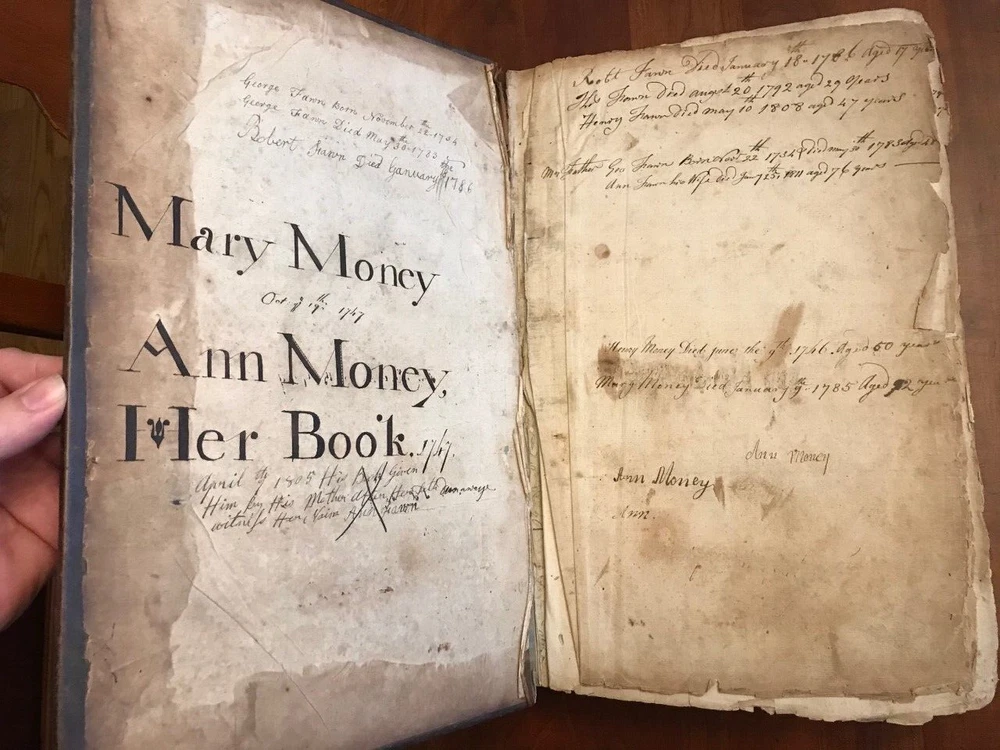 George Fawn Born November 22th 1734
George Fawn Died May 30th 1783
Robert Fawn Died January the 1786
Mary Money
Oct 19th 1747
Ann Money,
Her Book. 1747.
April 1805 His Book Given
Him by His Mother Ann
witness Ann Fawn
Robt Fawn Died January 18th 1786 Aged 17
Thos Fawn died august 20th 1792 aged 29 Years
Henry Fawn died may 10th 1808 aged 47 years
My Father Geo Fawn Born Novr 22th 1734 & died may 30th 1783
Ann Fawn his Wife died 1811 aged 76 years
Henry Money Died June the 9th 1746 Aged 50 years
Mary Money Died January 9th 1785 Aged 92 years
Ann Money
Ann Money
Ann.